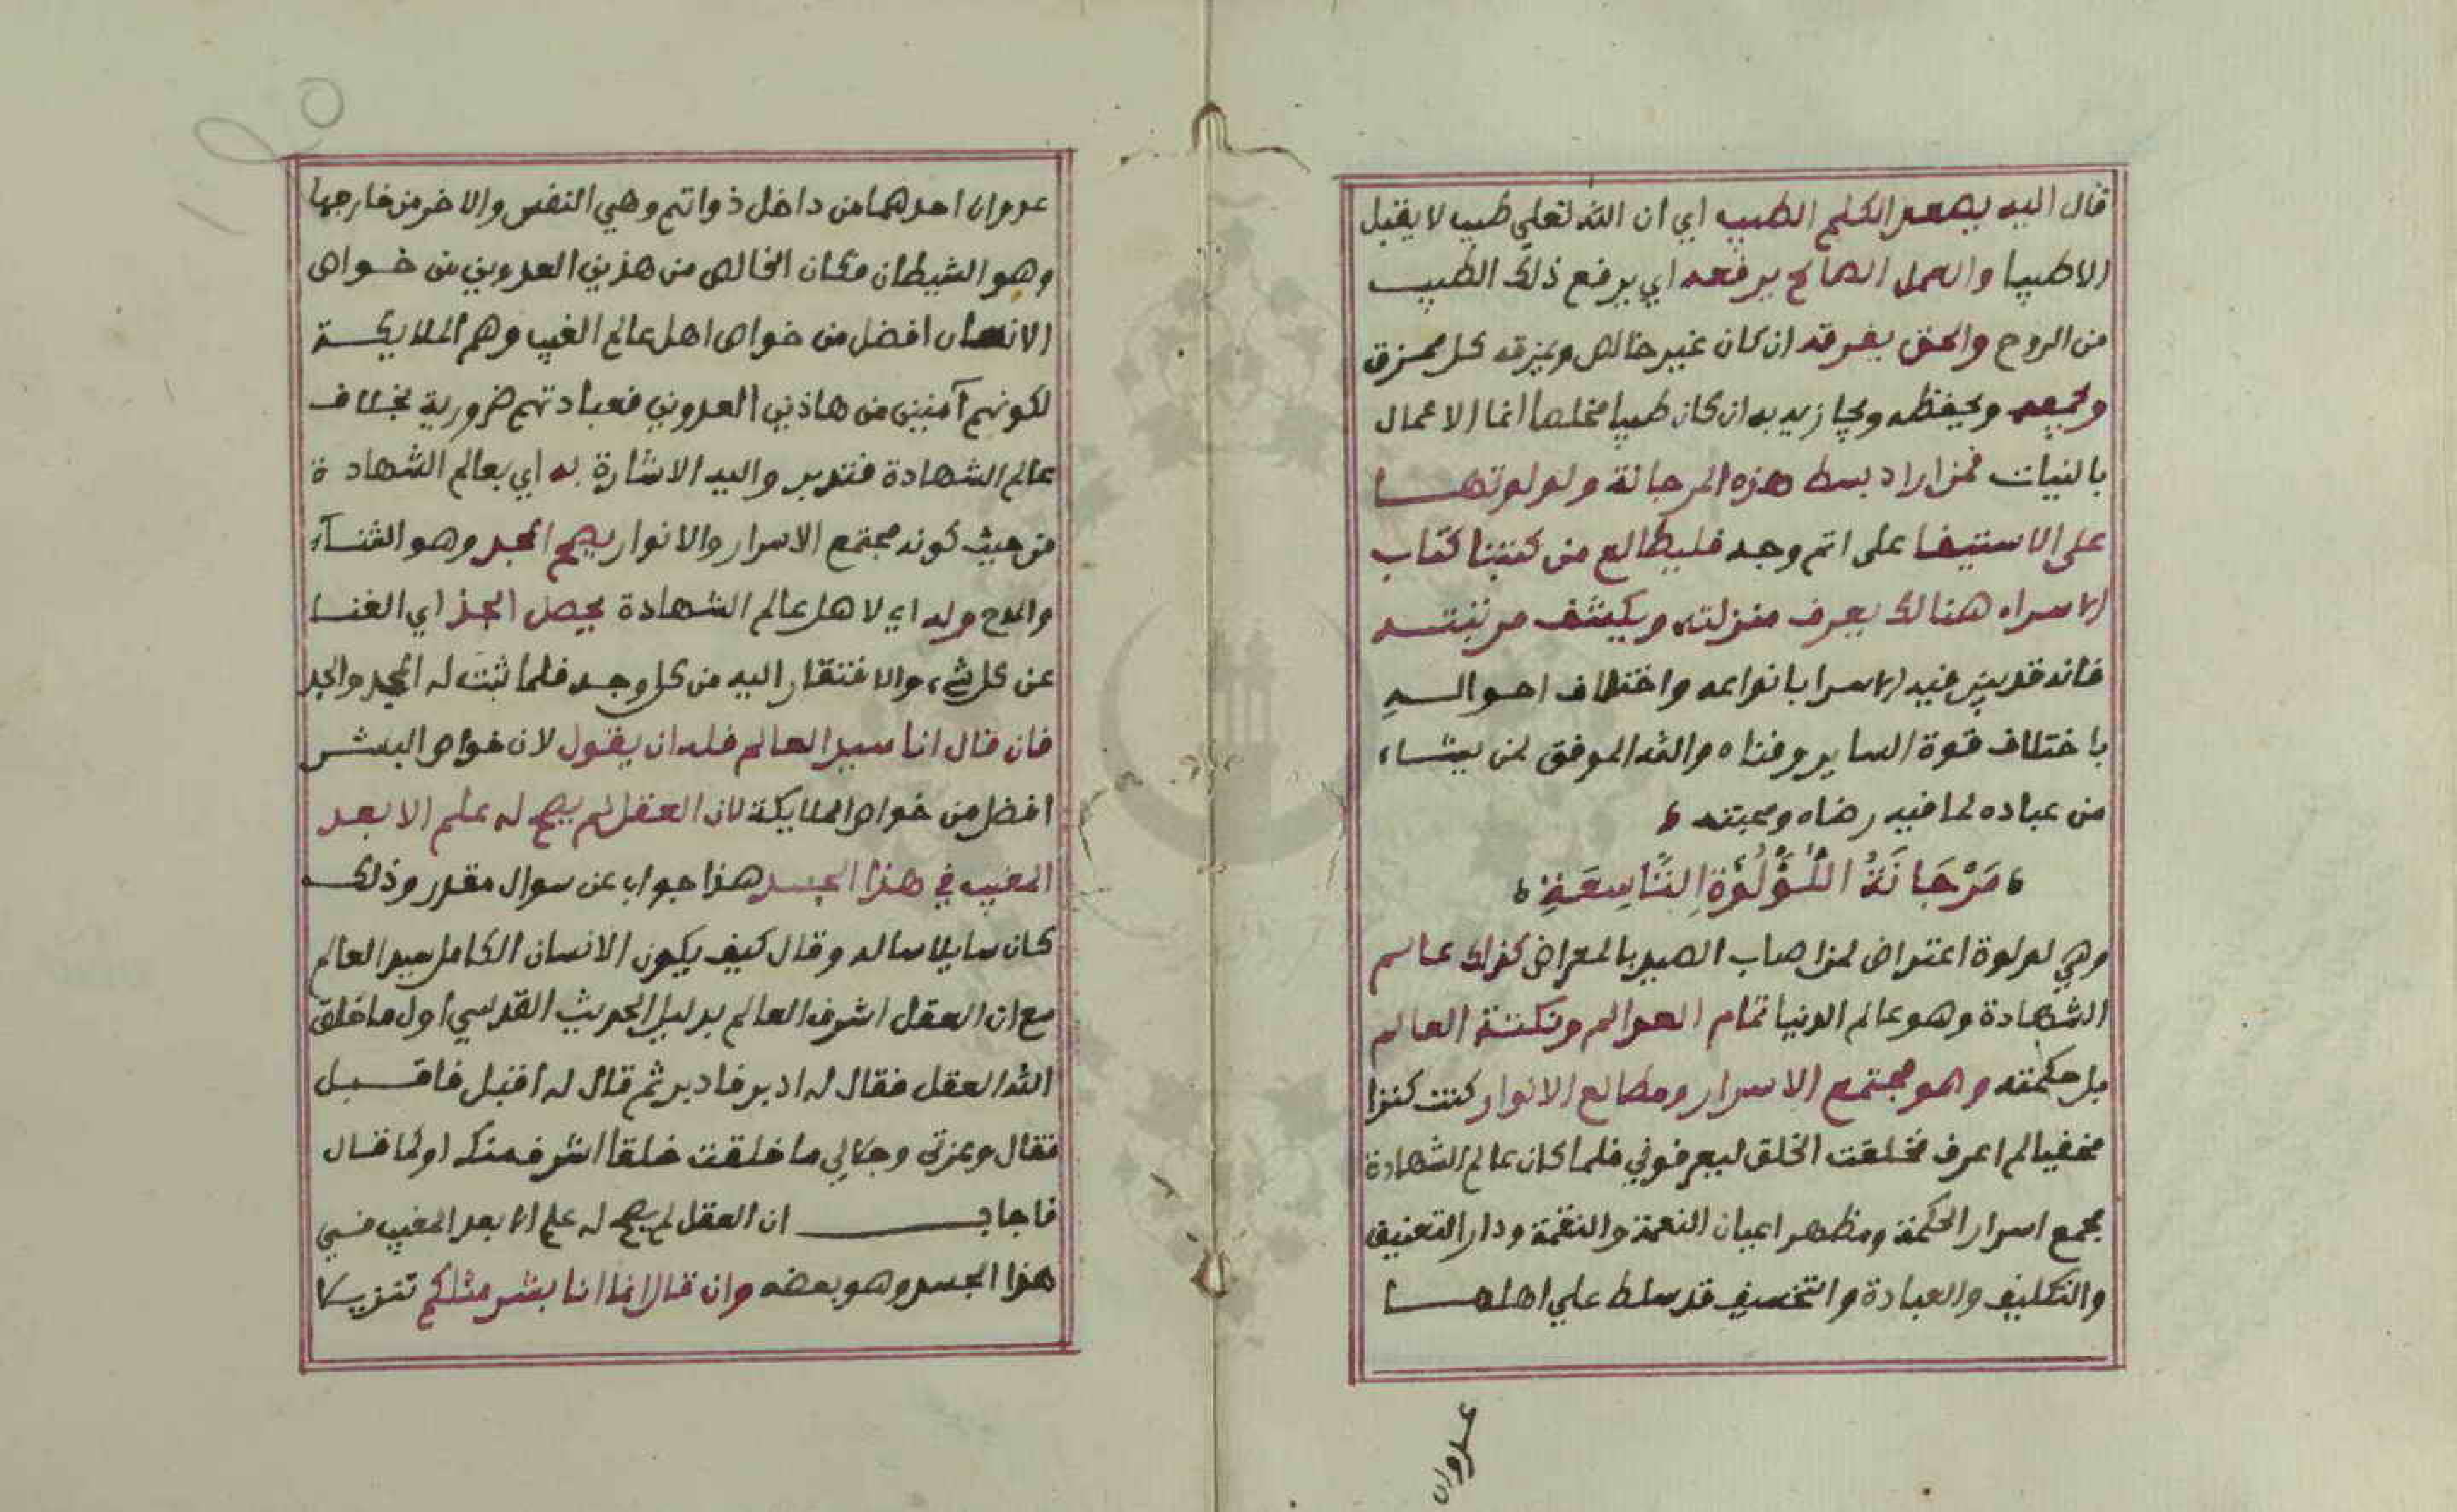 قال اليه يصعد الكلم الطيب اي ان الله تعلي طيب لا يقبل
الا طيبا والعمل الصالح يرفعه اي يرفع ذلك الطيب
من الروح والحق يفرقه ان كان غير خالص ويمزقه كل ممزق
ويجمعه ويحفظه ويجازيه به ان كان طيبا مخلصا انما الاعمال
بالنيات فمن اراد بسط هذه المرجانة ولولوتها
على الاستيفا على اتم وجه فليطالع من كتبنا كتاب
الاسراء هنالك يعرف منزلته ويكشف مرتبته
فانه قد بين فيه الاسرا بانواعه واختلاف احواله
باختلاف قوة الساير وفناه والله الموفق لمن يشاء
من عباده لما فيه رضاه ومحبته
مَرْجَانَةُ اللُّؤْلُؤَةِ التَّاسِعَةِ
وهي لولوة اعتراض لمن اصاب الصيد بالمعراض كذلك عالم
الشهادة وهو عالم الدنيا تمام العوالم ونكتة العالم
بل حكمته وهو مجتمع الاسرار ومطالع الانوار كنت كنزا
مخفيا لم اعرف فخلقت الخلق ليعرفوني فلما كان عالم الشهادة
مجمع اسرار الحكمة ومظهر اعيان النعمة والنقمة ودار التعنيف
والتكليف والعبادة والتخسيف قد سلط علي اهلها
عدوان
عدوان احدهما من داخل ذواتهم وهي النفس والاخر من خارجها
وهو الشيطان فكان الخالص من هذين العدوين من خواص
الانسان افضل من خواص اهل عالم الغيب وهم الملايكة
لكونهم آمنين من هاذين العدوين فعبادتهم ضرورية بخلاف
عالم الشهادة فتدبر واليه الاشارة به اي بعالم الشهادة
من حيث كونه مجتمع الاسرار والانوار يصح المجد وهو الثنآء
والمدح وله اي لاهل عالم الشهادة يحصل الجد اي الغنا
عن كل شيء والافتقار اليه من كل وجه فلما ثبت له المجد والجد
فان قال انا سيد العالم فله ان يقول لان خواص البشر
افضل من خواص الملايكة لان العقل لم يصح له علم الا بعد
المغيب في هذا الجسد هذا جواب عن سوال مقدر وذلك
كان سايلا ساله وقال كيف يكون الانسان الكامل سيد العالم
مع ان العقل اشرف العالم بدليل الحديث القدسي اول ما خلق
الله العقل فقال له ادبر فادبر ثم قال له اقبل فاقبل
فقال وعزتي وجلالي ما خلقت خلقا اشرف منك او كما قال
فاجاب ان العقل لم يصح له علم الا بعد المغيب في
هذا الجسد وهو بعضه وان قال انما انا بشر مثلكم تنزيلا